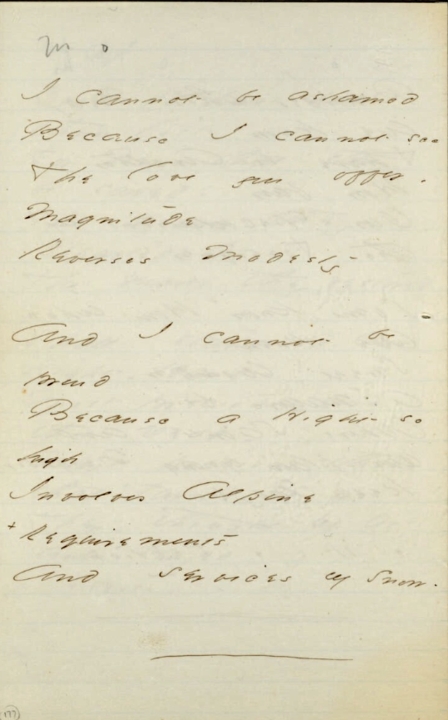 I cannot be ashamed
Because I cannot see
The love you offer -
Magnitude
Reverses Modesty -
And I cannot be
proud
Because a Hight so
high
Involves Alpine
+ Requirements
And Services of Snow.
(177)